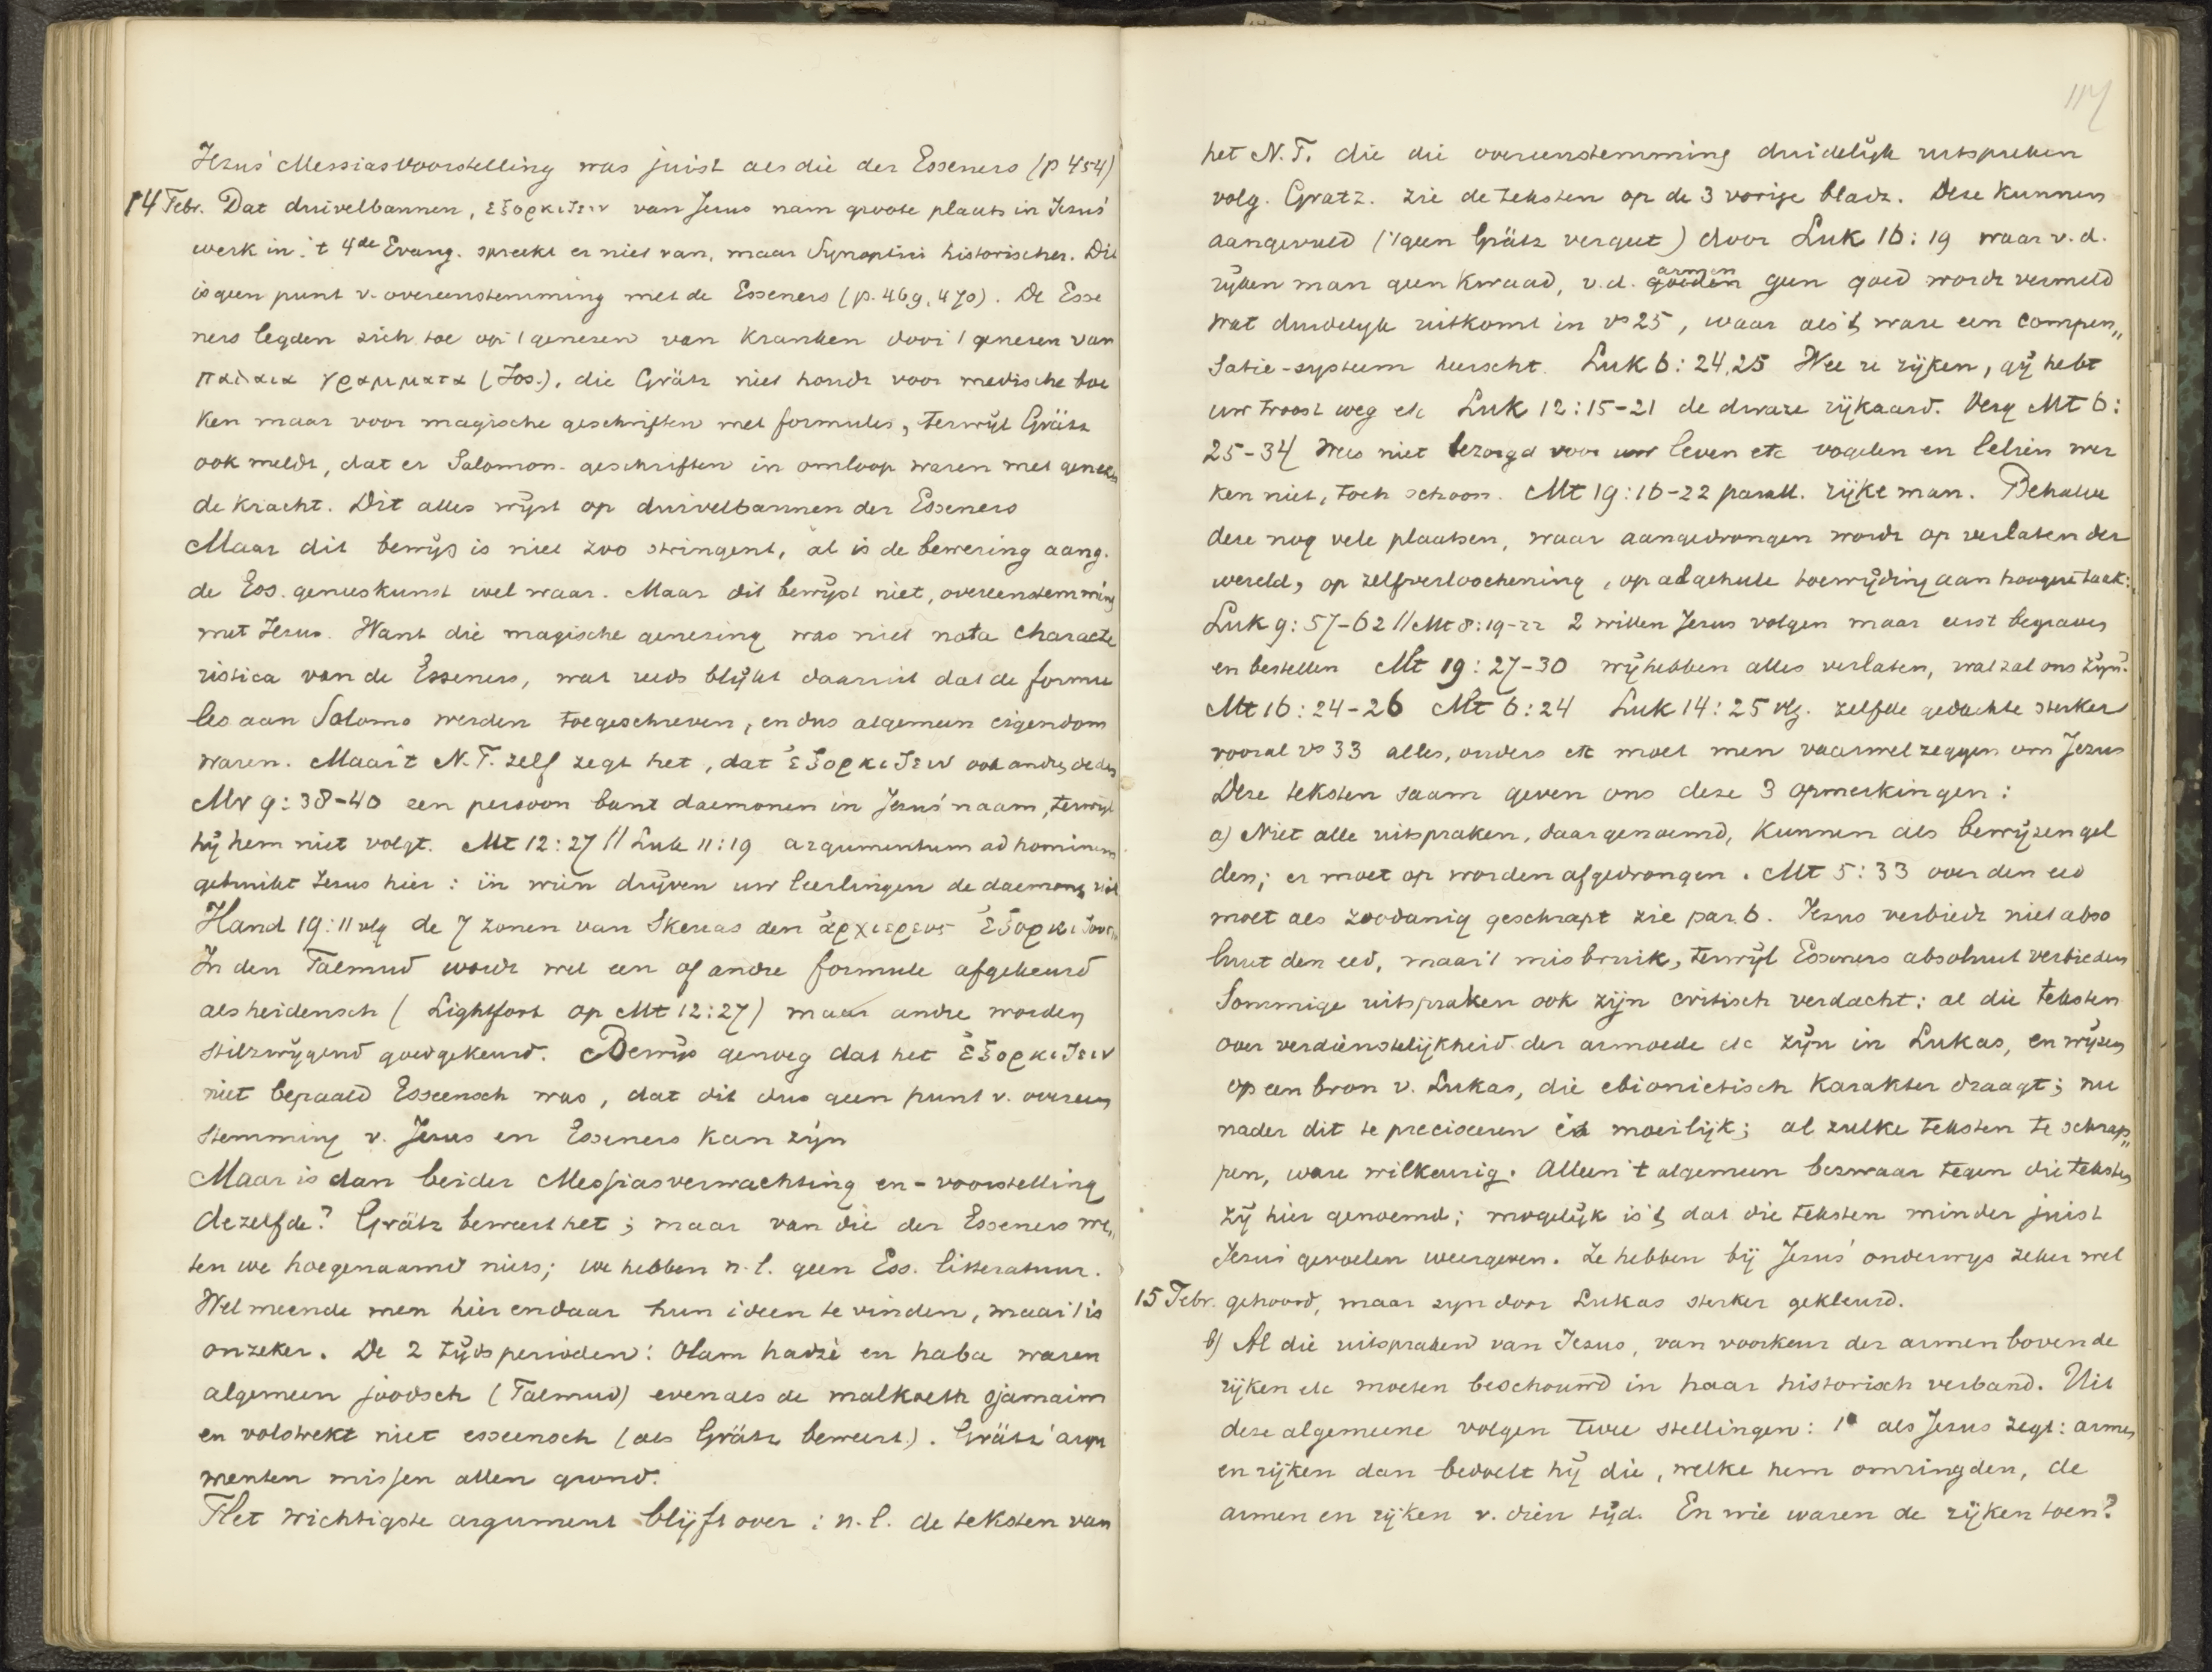 Jezus' Messiasvoorstelling was juist als die der Esseners (p 454)
14 Febr. Dat duivelbannen, ἐξορκιζειν van Jezus nam groote plaats in Jezus'
werk in. 't 4de Evang. spreekt er niet van, maar Synoptici historischer. Dit
is geen punt v. overeenstemming met de Esseners (p. 469, 470). De Esse
ners legden zich toe op 't genezen van kranken door 't genezen van
παλαια γραμματα (Jos.), die Grätz niet houdt voor medische boe
ken maar voor magische geschriften met formules, terwijl Grätz
ook meldt, dat er Salomon. geschriften in omloop waren met genezen
de kracht. Dit alles wijst op duivelbannen der Esseners
Maar dit bewijs is niet zoo stringent, al is de bewering aang.
de Ess. geneeskunst wel waar. Maar dit bewijst niet, overeenstemming
met Jezus. Want die magische genezing was niet nota characte
ristica van de Esseners, wat reeds blijkt daaruit dat de formu
les aan Salomo werden toegeschreven, en dus algemeen eigendom
waren. Maar 't N.T. zelf zegt het, dat ἐξορκιζειν ook andren deden
Mr 9:38-40 een persoon bant daemonen in Jezus' naam, terwijl
hij hem niet volgt. Mt 12:27 // Luk 11:19 argumentum ad hominem
gebruikt Jezus hier: in wien drijven uw leerlingen de daemonen uit
Hand 19:11 vlg de 7 zonen van Skevas den ἀρχιερευς ἐξορκιζουσι
In den Talmud wordt wel een of andre formule afgekeurd
als heidensch (Lightfoot op Mt 12:27) maar andre worden
stilzwijgend goedgekeurd. Bewijs genoeg dat het ἐξορκιζειν
niet bepaald Esseensch was, dat dit dus geen punt v. overeen
stemming v. Jezus en Esseners kan zijn
Maar is dan beider Messiasverwachting en -voorstelling
dezelfde? Grätz beweert het; maar van die der Esseners we„
ten we hoegenaamd niets; we hebben n.l. geen Ess. litteratuur.
Wel meende men hier en daar hun ideen te vinden, maar 't is
onzeker. De 2 tijdsperioden: Olam hadzè en haba waren
algemeen joodsch (Talmud) evenals de malkoeth sjamaim
en volstrekt niet esseensch (als Grätz beweert.). Grätz' argu
menten missen allen grond.
Het wichtigste argument blijft over: n.l. de teksten van
117
het N.T. die die overeenstemming duidelijk uitspreken
volg. Gratz. zie de teksten op de 3 vorige bladz. Deze kunnen
aangevuld ('tgeen Grätz vergeet) door Luk 16:19 waar v.d.
rijken man geen kwaad, v.d. goeden armen geen goed wordt vermeld
wat duidelijk uitkomt in vs 25, waar als 't ware een compen„
satie-systeem heerscht. Luk 6:24,25 Wee u rijken, gij hebt
uw troost weg etc Luk 12:15-21 de dwaze rijkaard. Verg Mt 6:
25-34 Wees niet bezorgd voor uw leven etc vogelen en lelien wer
ken niet, toch schoon. Mt 19:16-22 parall. rijke man. Behalve
deze nog vele plaatsen, waar aangedrongen wordt op verlaten der
wereld, op zelfverloochening, op algeheele toewijding aan hoogere taak:
Luk 9:57-62 // Mt 8:19-22 2 willen Jezus volgen maar eerst begraven
en bestellen Mt 19:27-30 wij hebben alles verlaten, wat zal ons zijn?
Mt 16:24-26 Mt 6:24 Luk 14:25 vlg. zelfde gedachte sterker
vooral vs 33 alles, ouders etc moet men vaarwel zeggen om Jezus
Deze teksten saam geven ons deze 3 opmerkingen:
a) Niet alle uitspraken, daar genoemd, kunnen als bewijzen gel
den; er moet op worden afgedrongen. Mt 5:33 over den eed
moet als zoodanig geschrapt zie par 6. Jezus verbiedt niet abso
luut den eed, maar 't misbruik, terwijl Esseners absoluut verbieden
Sommige uitspraken ook zijn critisch verdacht: al die teksten
over verdienstelijkheid der armoede etc zijn in Lukas, en wijzen
op een bron v. Lukas, die ebionietisch karakter draagt; nu
nader dit te preciseeren is moeilijk; al zulke teksten te schrap„
pen, ware wilkeurig. Alleen 't algemeen bezwaar tegen die teksten
zij hier genoemd; mogelijk is 't, dat die teksten minder juist
Jezus' gevoelen weergeven. Ze hebben bij Jezus' onderwys zeker wel
15 Febr. gehoord, maar zyn door Lukas sterker gekleurd.
b) Al die uitspraken van Jezus, van voorkeur der armen boven de
rijken etc moeten beschouwd in haar historisch verband. Uit
deze algemeene volgen twee stellingen: 1° als Jezus zegt: armen
en rijken dan bedoelt hij die, welke hem omringden, de
armen en rijken v. dien tijd. En wie waren de rijken toen?